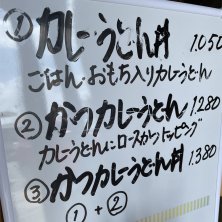 ① カレーうどん丼 1,050
ごはん・おもち入りカレーうどん
② かつカレーうどん 1,280
カレーうどんにロースかつトッピング
③ かつカレーうどん丼 1,380
①+②